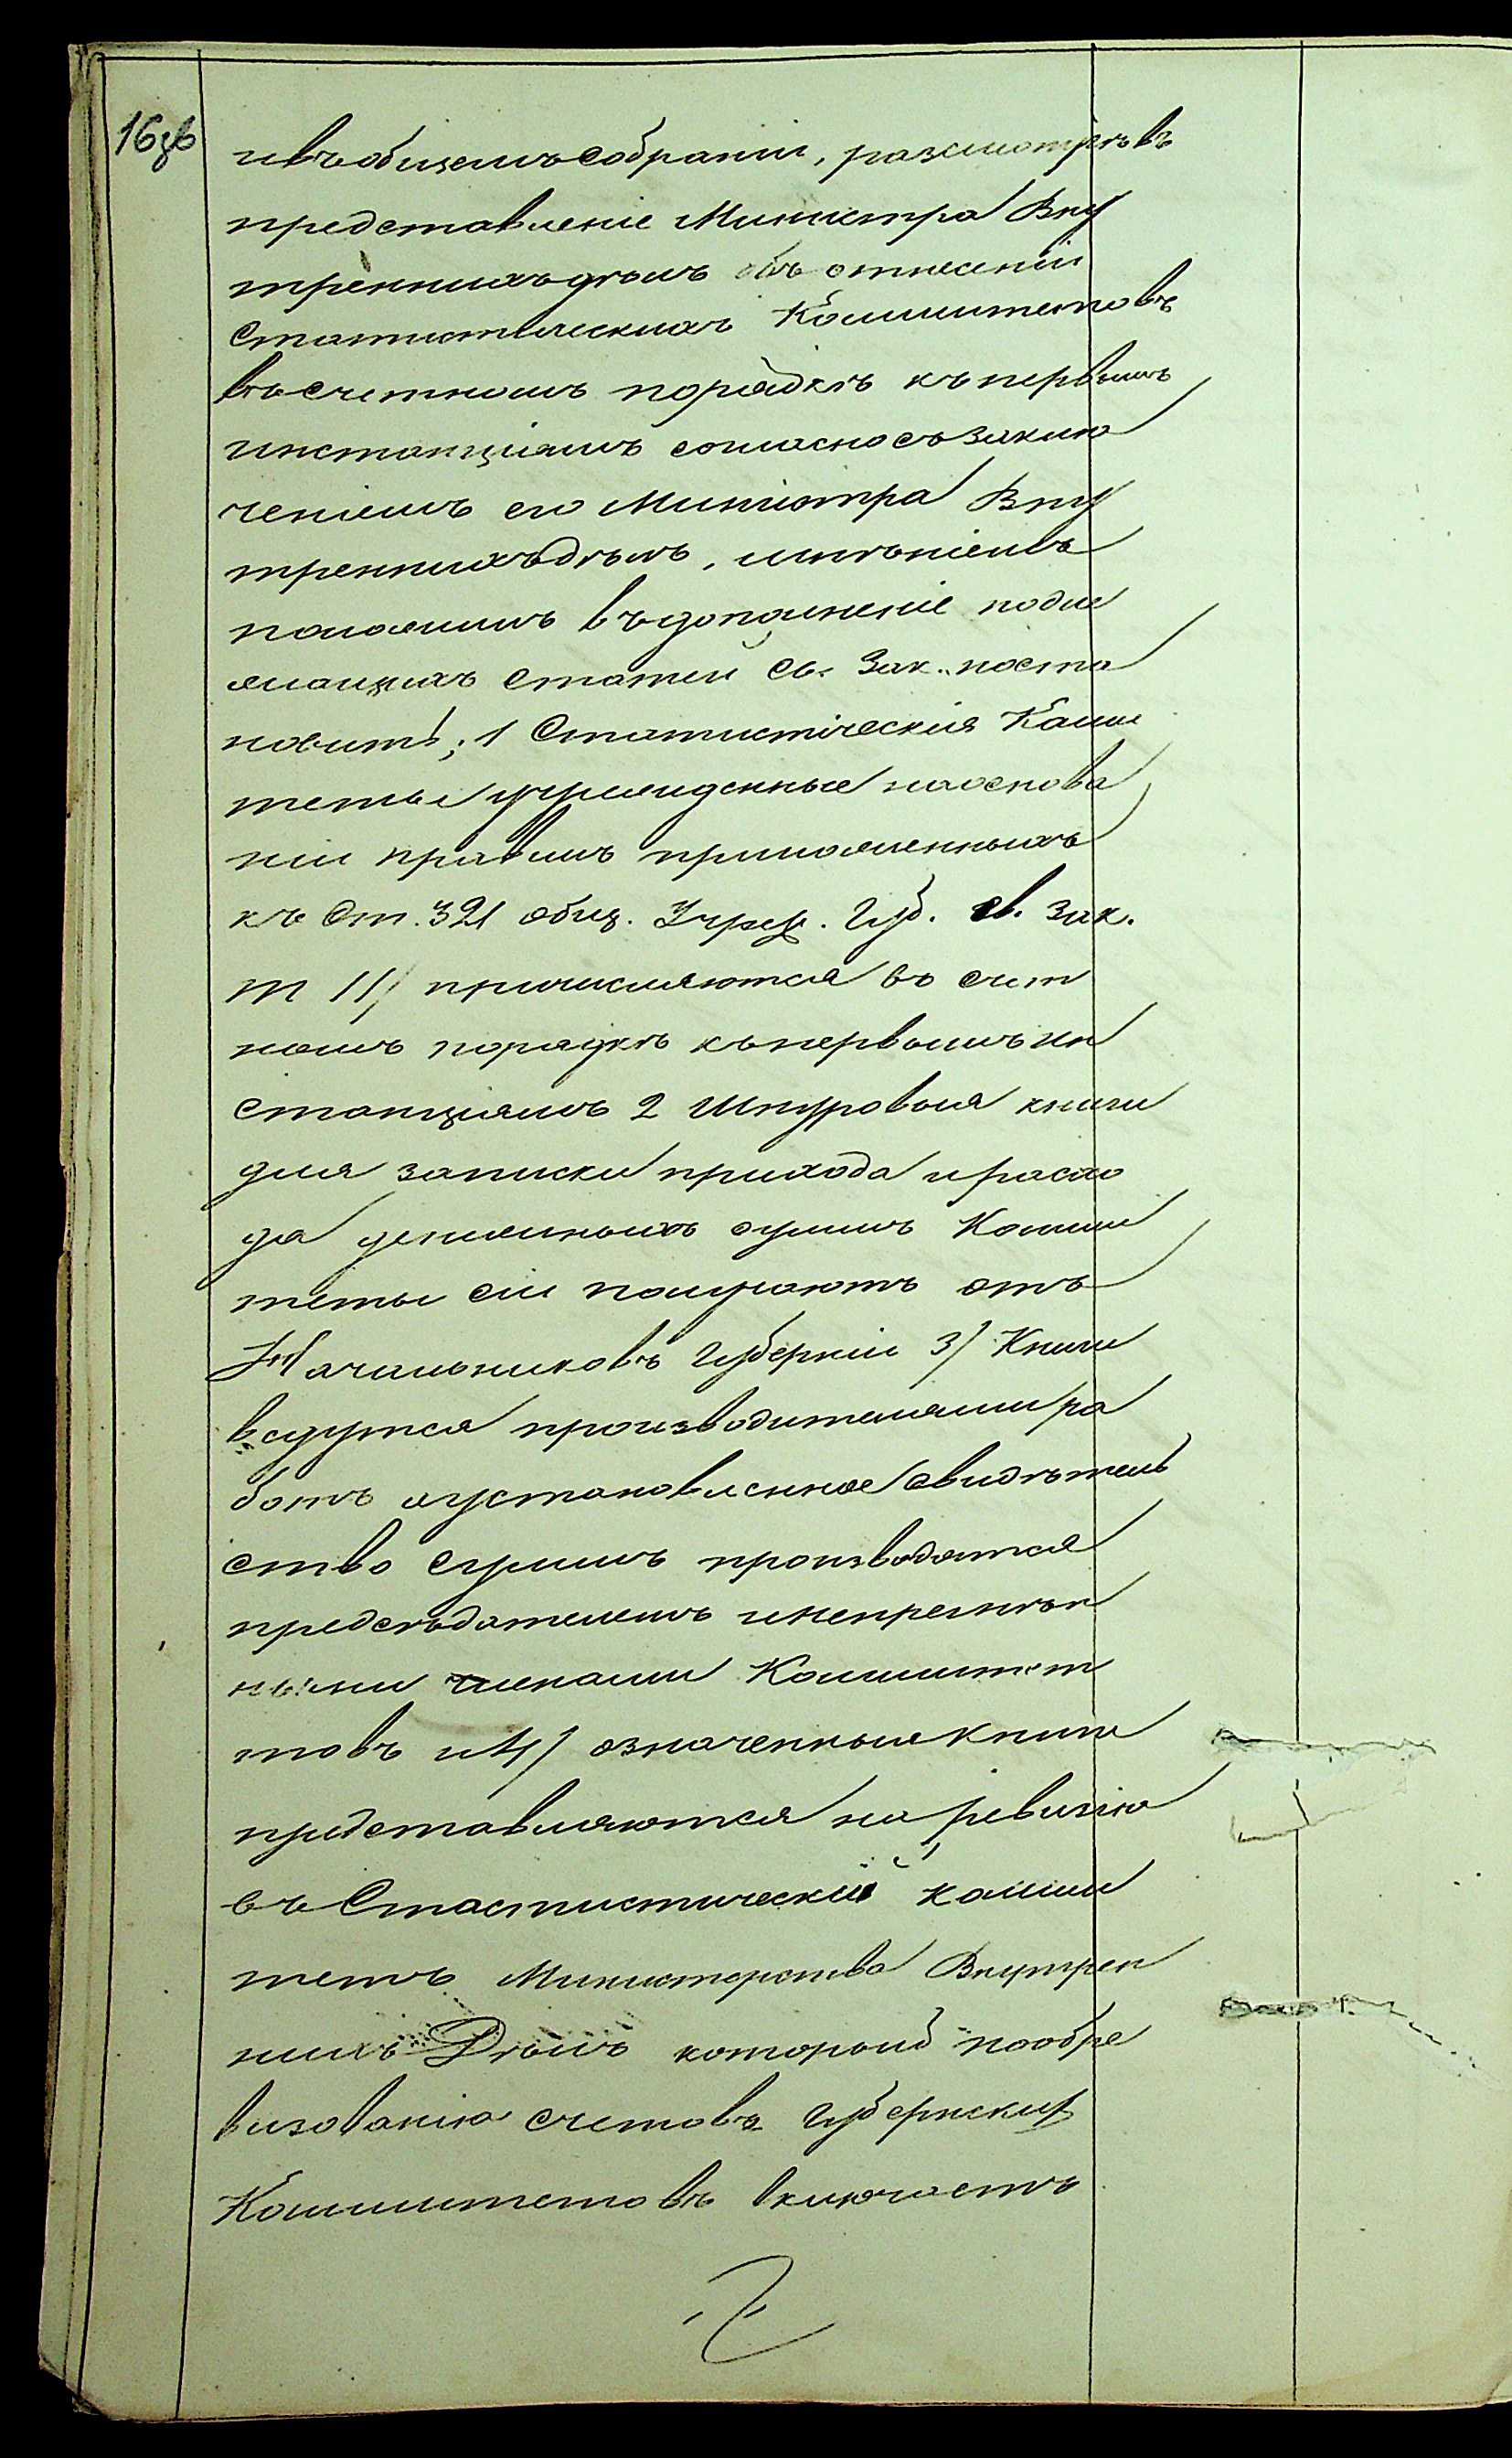 16зв
ивъ общемъ собраніи, разсмотрѣвъ
представленіе Министра Вну
треннихъ дѣлъ объ отнесеніи
Статистическихъ Коммитетовъ
въ счетномъ порядкѣ къ первымъ
инстанціямъ согласно съ заклю
ченіемъ его Министра Вну
треннихъ дѣлъ, мнѣніемъ
положилъ въ дополненіе подле
жащихъ статей Св. Зак. поста
новить; 1 Статистическія Комми
теты учрежденные на основа
ніи правилъ приложенныхъ
къ Ст. 321 общ. Учреж. Губ. св. Зак.
т II) причисляются въ счет
номъ порядкѣ къ первымъ ин
станціямъ 2 Шнуровыя книги
для записки прихода и расхо
да денежныхъ суммъ Комми
теты сіи получаютъ отъ
Начальниковъ Губерніи 3) Книги
ведутся производителями ра
ботъ а установленное свидѣтель
ство суммъ производятся
предсѣдателемъ и непремѣн
ными членами Коммитет
товъ и 4) означенные книги
представляются на ревизію
въ Стастистическій комми
тетъ Министерства Внутрен
нихъ Дѣлъ который по обре
визованію счетовъ Губернских
Коммитетовъ включаетъ